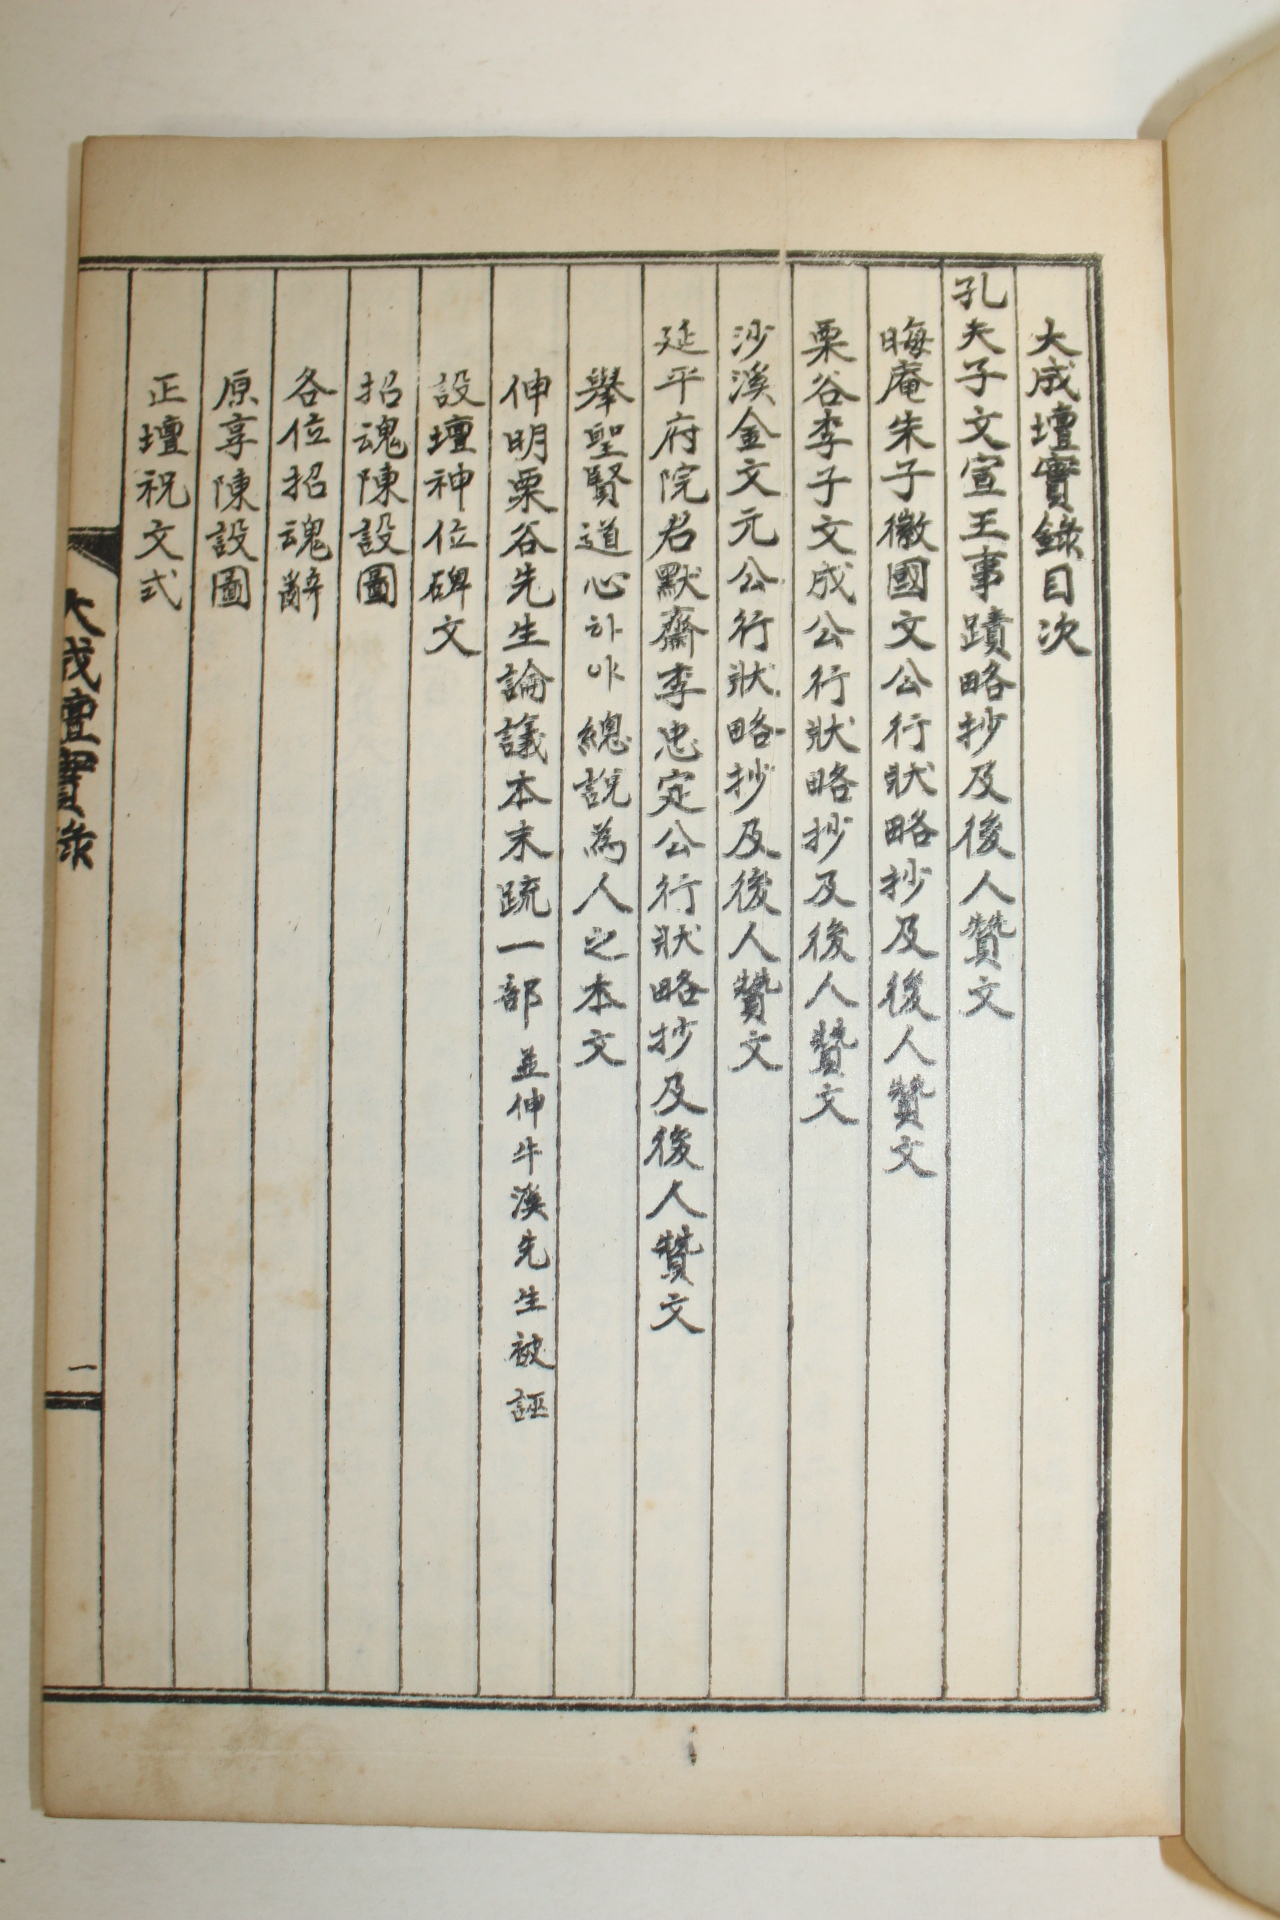 大成壇實錄目次
孔夫子文宣王事蹟略抄及後人贊文
晦庵朱子徽國文公行狀略抄及後人贊文
栗谷李子文成公行狀略抄及後人贊文
沙溪金文元公行狀略抄及後人贊文
延平府院君默齋李忠定公行狀略抄及後人贊文
擧聖賢道心하야總說為人之本文
伸明栗谷先生論議本末疏一部 並伸牛溪先生被誣
設壇神位碑文
招魂陳設圖
各位招魂辭
原享陳設圖
正壇祝文式
大成壇實錄
一